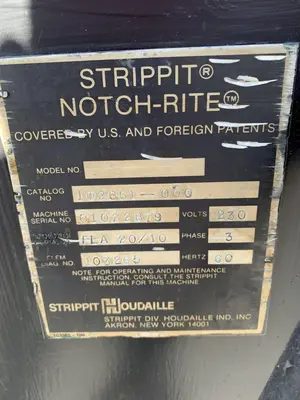 STRIPPIT®
NOTCH-RITE™
COVERED BY U.S. AND FOREIGN PATENTS
MODEL NO.
CATALOG NO
MACHINE SERIAL NO VOLTS 230
FLA 20/10 PHASE 3
ELEM DIAG NO. HERTZ 60
NOTE FOR OPERATING AND MAINTENANCE
INSTRUCTION, CONSULT THE STRIPPIT
MANUAL FOR THIS MACHINE
STRIPPIT HOUDAILLE
STRIPPIT DIV. HOUDAILLE IND. INC
AKRON, NEW YORK 14001